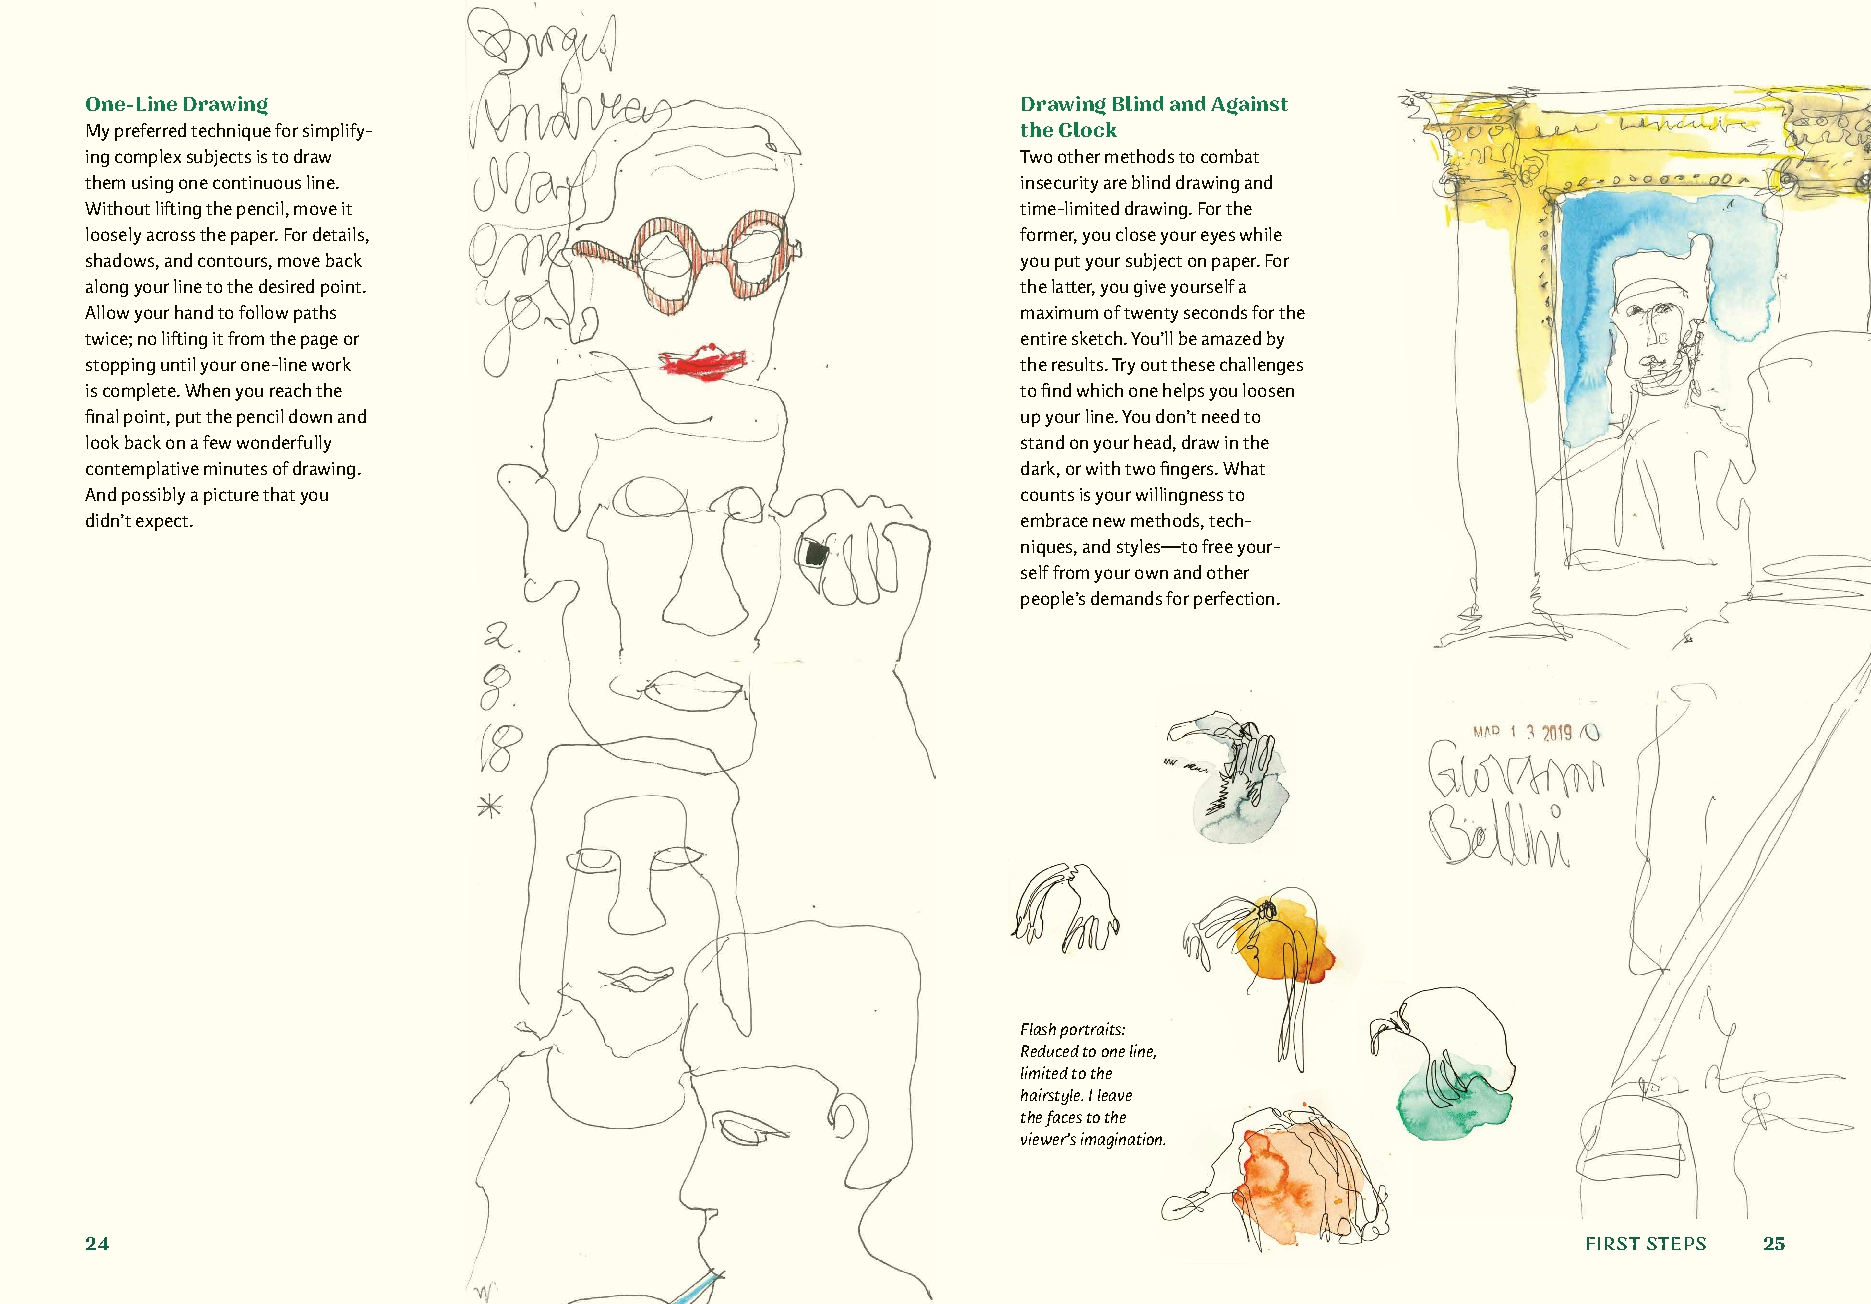 One-Line Drawing
My preferred technique for simplify-
ing complex subjects is to draw
them using one continuous line.
Without lifting the pencil, move it
loosely across the paper. For details,
shadows, and contours, move back
along your line to the desired point.
Allow your hand to follow paths
twice; no lifting it from the page or
stopping until your one-line work
is complete. When you reach the
final point, put the pencil down and
look back on a few wonderfully
contemplative minutes of drawing.
And possibly a picture that you
didn’t expect.
24
Birgit
Andreas
2.
8.
18
*
Drawing Blind and Against
the Clock
Two other methods to combat
insecurity are blind drawing and
time-limited drawing. For the
former, you close your eyes while
you put your subject on paper. For
the latter, you give yourself a
maximum of twenty seconds for the
entire sketch. You’ll be amazed by
the results. Try out these challenges
to find which one helps you loosen
up your line. You don’t need to
stand on your head, draw in the
dark, or with two fingers. What
counts is your willingness to
embrace new methods, tech-
niques, and styles—to free your-
self from your own and other
people’s demands for perfection.
Flash portraits:
Reduced to one line,
limited to the
hairstyle. I leave
the faces to the
viewer’s imagination.
MAR 13 2019
Giovanni
Bellini
FIRST STEPS 25